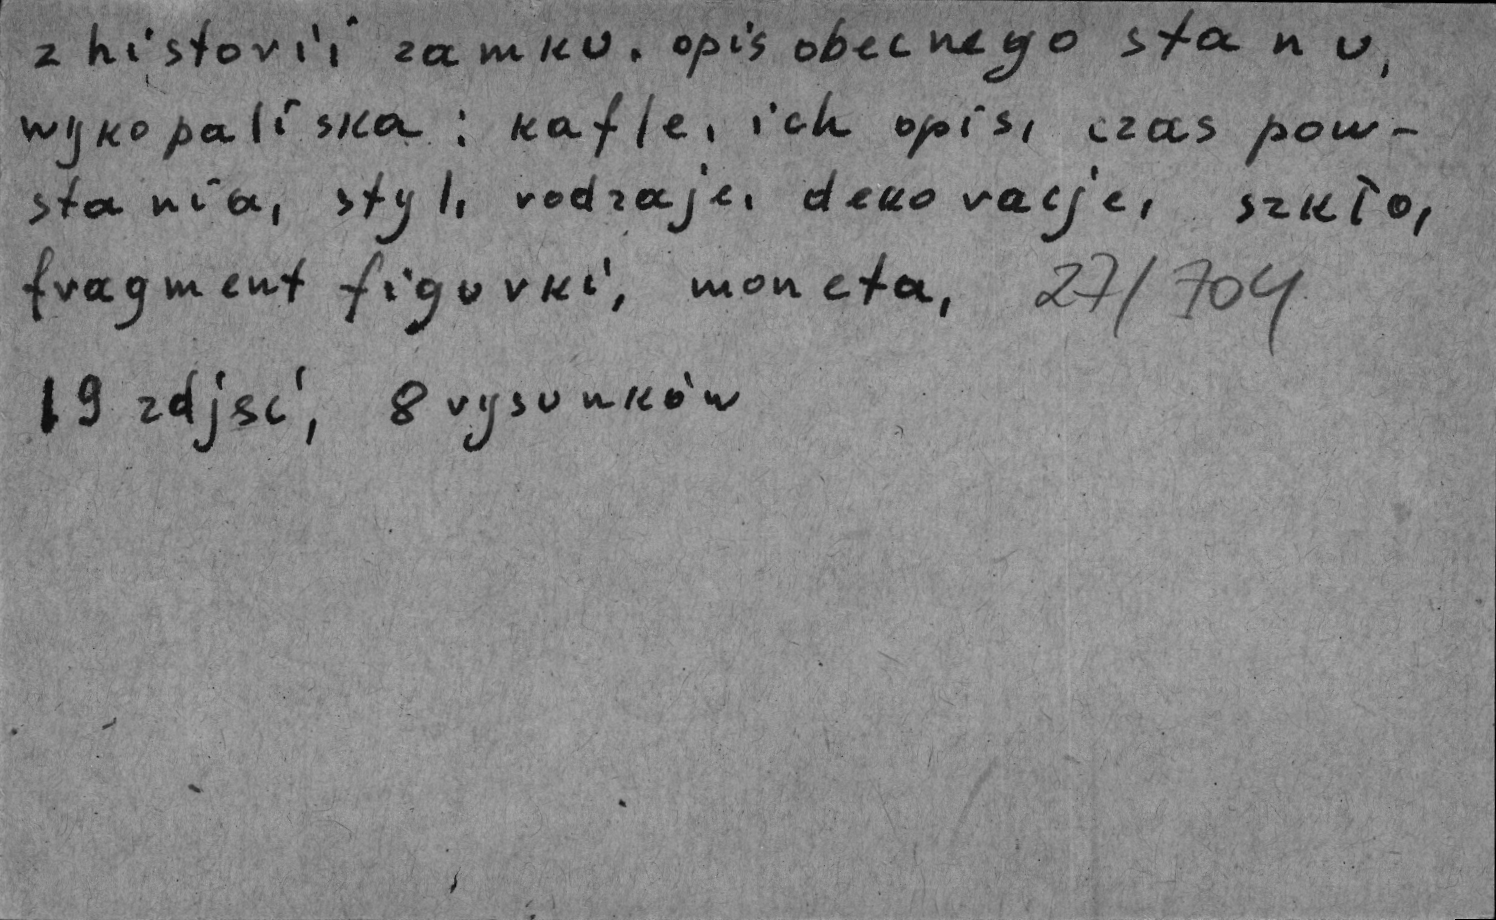 z historii zamku. opis obecnego stanu,
wykopaliska: kafle, ich opis, czas pow-
stania, styl, rodzaje, dekoracje, szkło,
fragment figurki, moneta, 27/704
19 zdjęć, 8 rysunków